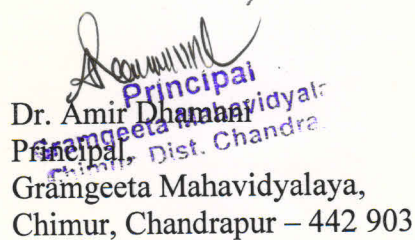 Principal
Gramgeeta Mahavidyala
Chimur, Dist. Chandra
Dr. Amir Dhamani
Principal,
Gramgeeta Mahavidyalaya,
Chimur, Chandrapur – 442 903